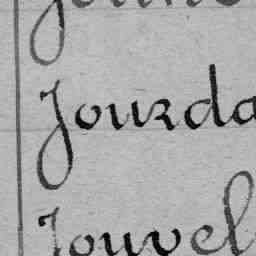 Jourda
Jouvel